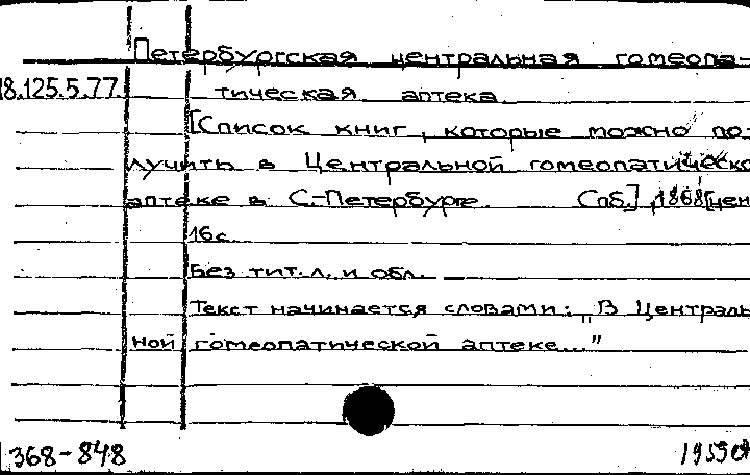 Петербургская центральная гомеопа-
18.125.5.77. тическая аптека
[Список книг, которые можно по-
лучить в Центральной гомеопатическо
аптеке в С.-Петербурге. Спб.], 1868[цен
16с.
Без тит.л. и обл.
Текст начинается словами: „В Централь
ной гомеопатической аптеке..."
368-848